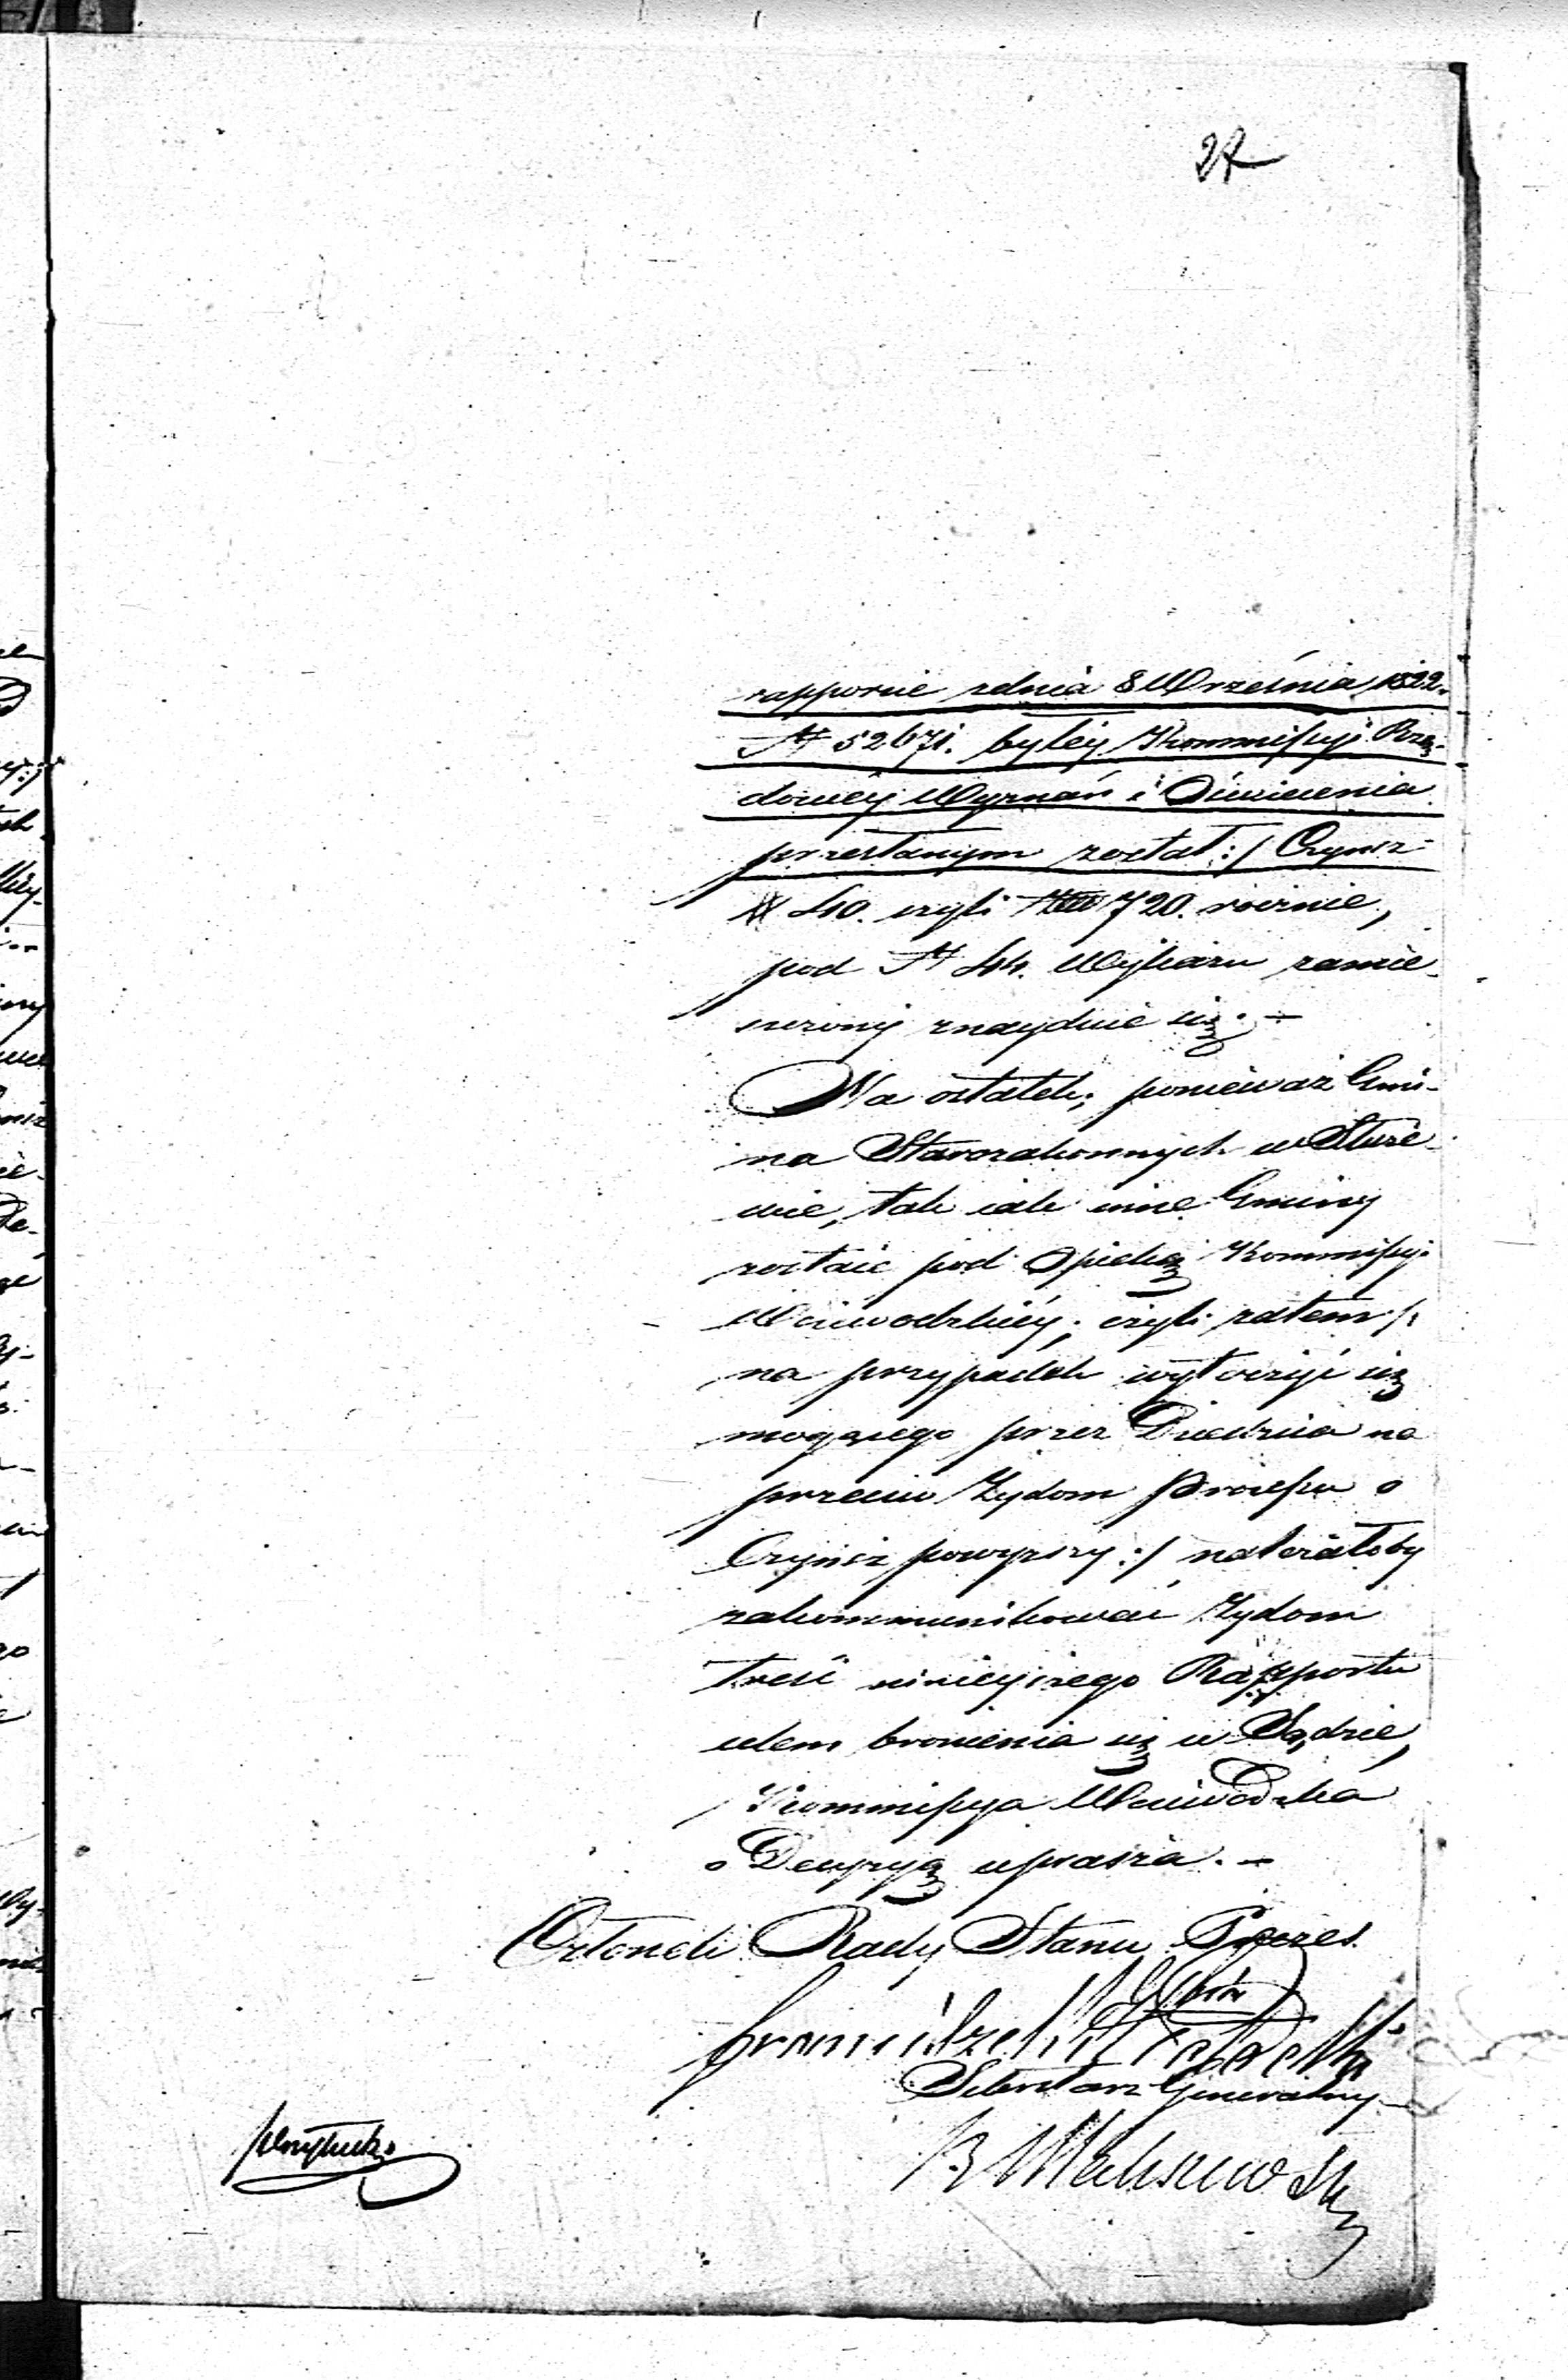 27
rapporcie z dnia 8 Września 1822.
N 52671. byłey Kommissyi Rzą-
dowéy Wyznań i Oświecenia
przesłanym został :/ Czynsz
# 40. czyli 720. rocznie,
pod N 44. Wykazu zamie-
szczony znayduie się. —
Na ostatek; ponieważ Gmi-
na Starozakonnych w Służe-
wie, tak iak inne Gminy
zostaie pod Opieką Kommissyi
Woiewodzkiéy; czyli zatem /:
na przypadek wytoczyć się
mogącego przez Dziedzica na
przeciw Żydom Processu o
Czynsz powyższy :/ należałoby
zakommunikować Żydom
treść ninieyszego Rapportu
celem bronienia się w Sądzie,
Kommissya Woiewodzka
o Decyzyą uprasza. —
Członek Rady Stanu Prezes
Sekretarz Generalny